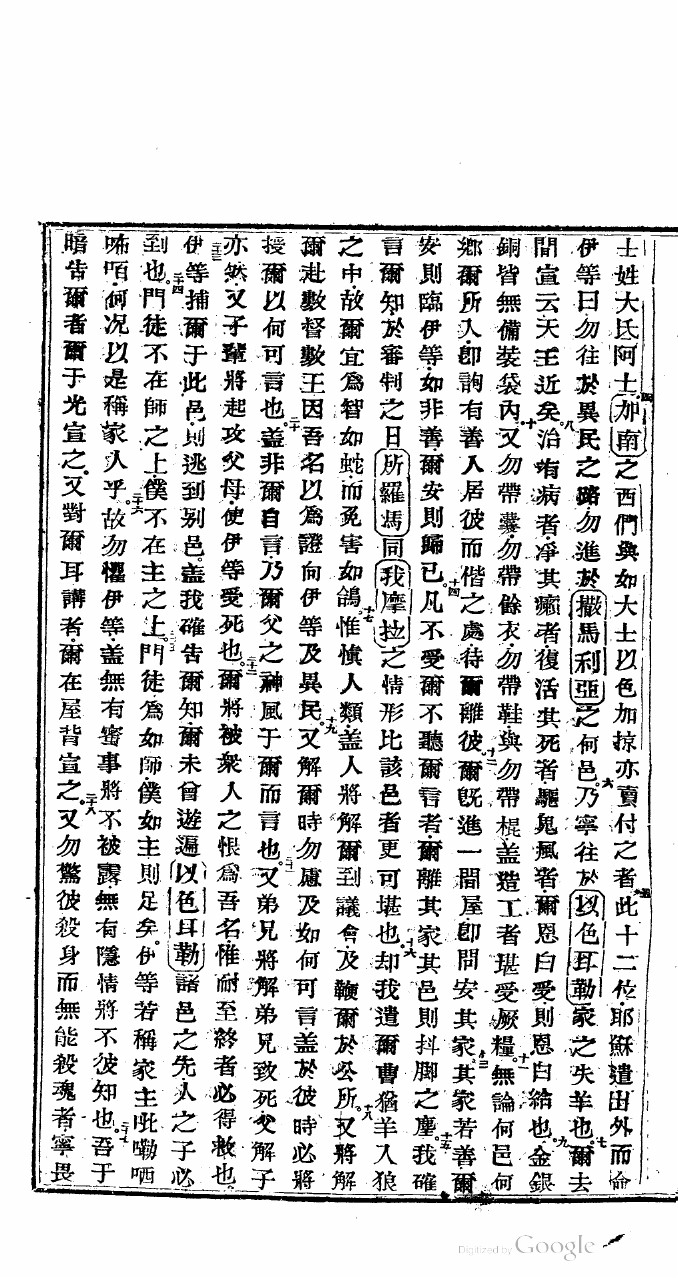 士姓大氐阿士加南之西們與如大士以色加掠亦賣付之者此十二位耶穌遣出外而命
伊等曰勿往於異民之路勿進於撒馬利亞之何邑乃寧往於以色耳勒家之失羊也爾去
間宣云天王近矣治有病者凈其癩者復活其死者驅鬼瘋者爾恩白受則恩白給也金銀
銅皆無備裝袋內又勿帶囊勿帶餘衣勿帶鞋與勿帶棍盖造工者堪受厥糧無論何邑何
鄉爾所入即詢有善人居彼而偕之處待爾離彼爾旣進一間屋即問安其家其家若善爾
安則臨伊等如非善爾安則歸已凡不受爾不聽爾言者爾離其家其邑則抖脚之塵我確
言爾知於審判之日所羅馬同我摩拉之情形比該邑者更可堪也却我遣爾曹猶羊入狼
之中故爾宜為智如蛇而免害如鴿惟愼人類盖人將解爾到議會及鞭爾於公所又將解
爾赴數督數王因吾名以為證向伊等及異民又解爾時勿慮及如何可言盖於彼時必將
授爾以何可言也盖非爾自言乃爾父之神風于爾而言也又弟兄將解弟兄致死父解子
亦然又子輩將起攻父母使伊等受死也爾將被衆人之恨爲吾名惟耐至終者必得救也
伊等捕爾于此邑則逃到别邑盖我確告爾知爾未曾遊遍以色耳勒諸邑之先人之子必
到也門徒不在師之上僕不在主之上門徒為如師僕如主則足矣伊等若稱家主吡嘞哂
咘咟何况以是稱家人乎故勿懼伊等盖無有密事將不被露無有隱情將不彼知也吾于
暗告爾者爾于光宣之又對爾耳講者爾在屋背宣之又勿驚彼殺身而無能殺魂者寧畏
Digitized by Google